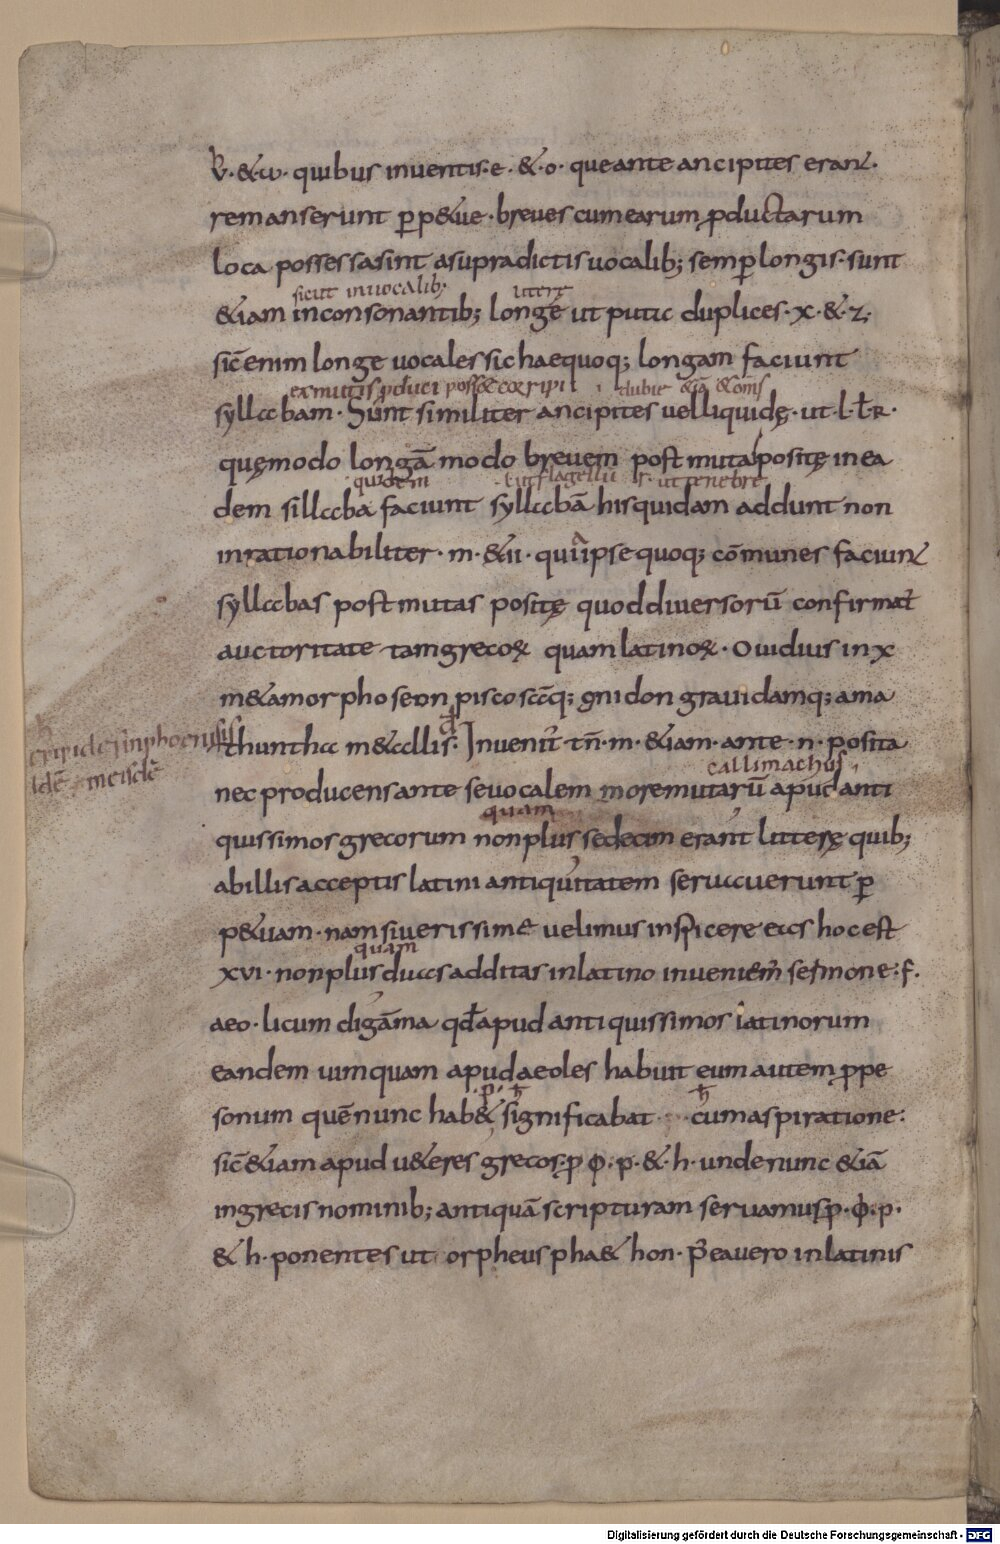 Ͱ·&·ω· quibus inventis·e·&·o· que ante ancipites erant·
remanserunt ꝑp&ue·breues cum earum ꝓductarum
loca possessa sint a supradictis uocalib; semꝑ longis·sunt
sicut in uocalib;
&iam in consonantib; longę ut putꞇc duplices·x·&·z·
sic̄ enim longe uocales sic haequoq; longam faciunt
ex mutis ꝓduci poss& corripi dubie &iā & cōms
syllabam·Sunt similiter ancipites uel liquidę·ut·l·ł·R·
quęmodo longā modo breuem post muta positę in ea
quidem ut flagellū ut tenebrę
dem sillaba faciunt syllabā his quidam addunt non
inrationabiliter·m·&·n·quia ipse quoq; cōmunes faciunt
syllabas post mutas positę quod diuersorū confirmat̄
auctoritate tam grecoꝝ quam latinoꝝ·Ouidius in x
m&amorphoseon piscosāq; gnidon grauidamq; ama
thuntha m&allis·Inuenit̄ tn̄·m·&iam·ante·n·posita
euripides in phoenissis
Idē
callimachus
nec producens ante se uocalem more mutarū apud anti
quam
quissimos grecorum non plus sedecim erant litterę quib;
ab illis acceptis latini antiquitatem seruauerunt ꝑ
p&uam·nam si uerissime uelimus inspicere eas hoc est
quam
xvi·non plus duas additas in latino inueniem̄ sermone:f·
aeo·licum digāma qđ apud antiquissimos latinorum
eandem uim quam apud aeoles habuit eum autem ꝓpe
p· h
sonum quē nunc hab& significabat cum aspiratione:
sic̄ &iam apud u&eres grecos·ꝓ φ·p·&·h·unde nunc &iā
in grecis nominib; antiquā scripturam seruamus·ꝓ·φ·p·
& h·ponentes ut orpheus pha&hon·p̄ea uero in latinis
Digitalisierung gefördert durch die Deutsche Forschungsgemeinschaft - DFG